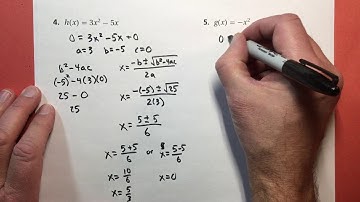 4. h(x) = 3x² − 5x
0 = 3x² − 5x + 0
a = 3 b = −5 c = 0
b² − 4ac
(−5)² − 4(3)(0)
25 − 0
25
x = −b ± √b²−4ac / 2a
x = −(−5) ± √25 / 2(3)
x = 5 ± 5 / 6
x = 5+5 / 6 or x = 5−5 / 6
x = 10 / 6 x = 0
x = 5 / 3
5. g(x) = −x²
0